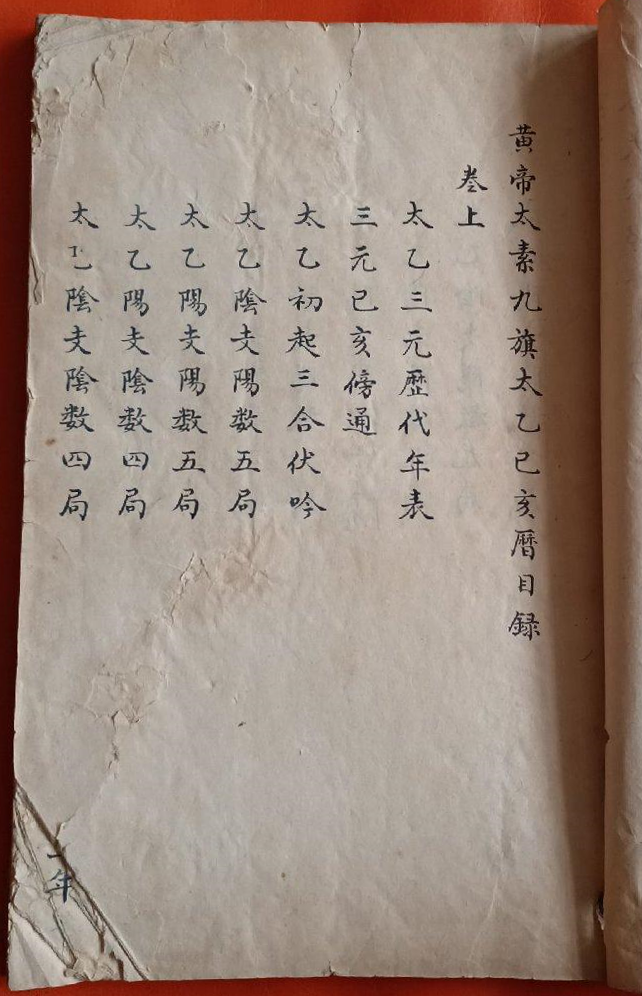 黄帝太素九旗太乙已亥曆目録
卷上
太乙三元歷代年表
三元已亥傍通
太乙初起三合伏吟
太乙陰支陽数五局
太乙陽支陽数五局
太乙陽支陰数四局
太乙陰支陰数四局
年